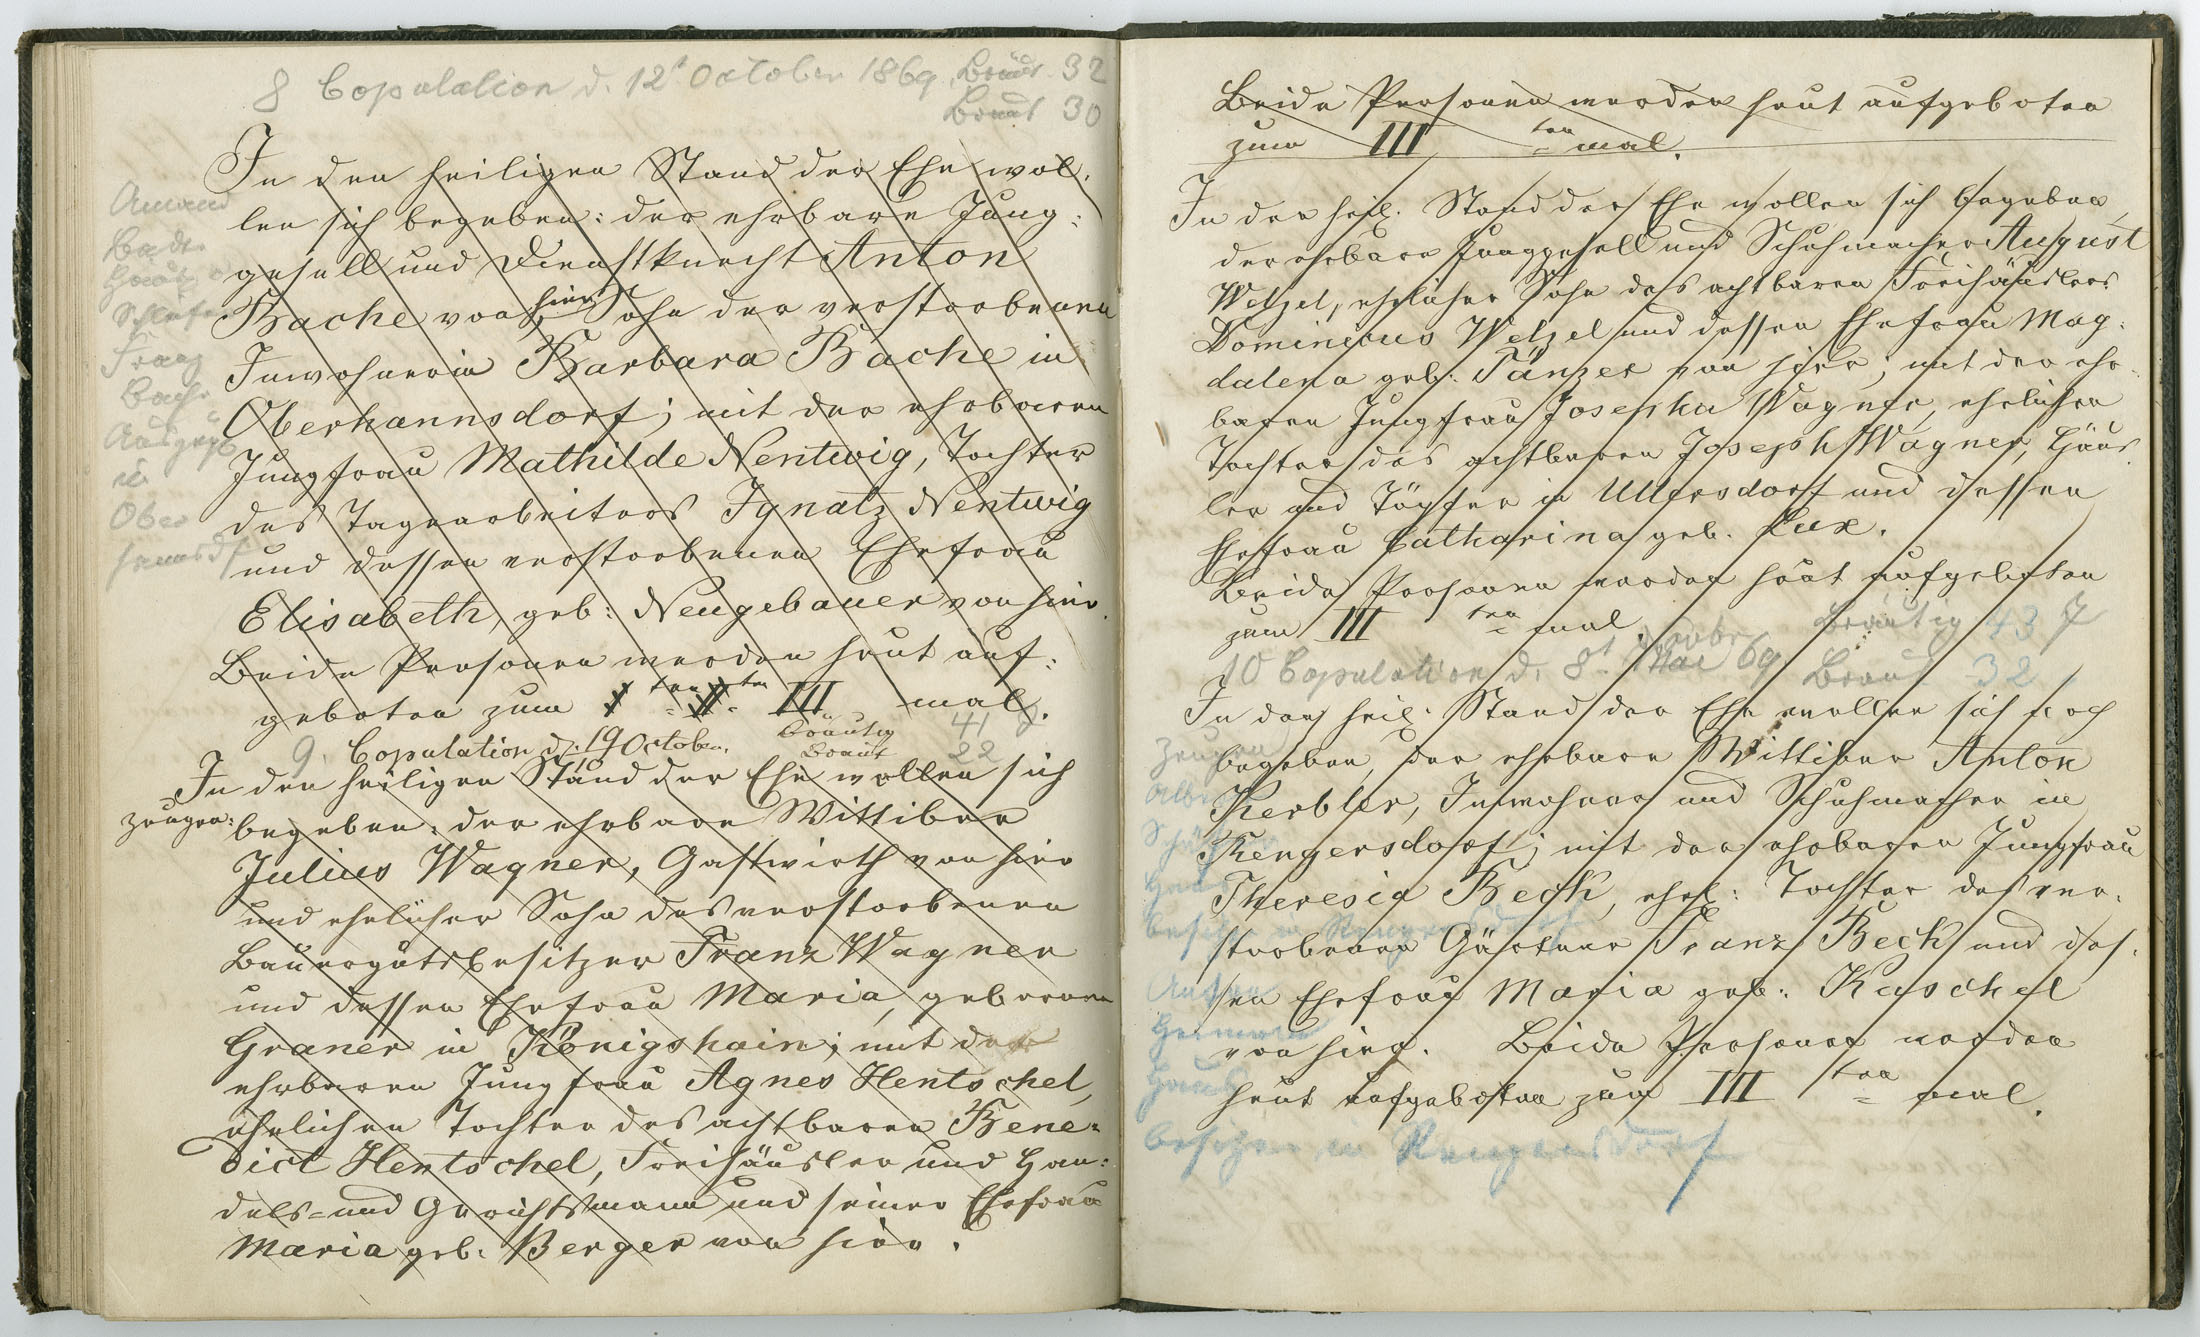 8 Copulation d. 12t October 1869. Bräut. 32
Braut 30
In den heiligen Stand der Ehe wol-
len sich begeben: der ehrbare Jung-
gesell und Dienstknecht Anton
Bache von hier, Sohn der verstorbenen
Inwohnerin Barbara Bache in
Oberhannsdorf; mit der ehrbaren
Jungfrau Mathilde Nentwig, Tochter
des Tagearbeiters Ignatz Nentwig
und dessen verstorbenen Ehefrau
Elisabeth, geb: Neugebauer von hier.
Beide Personen werden heut auf-
geboten zum I ten II ten III mal.
Amand
Franz
Bache
Auszüg
in
Ober
hannsdf
9. Copulation d. 19 October. Bräutig 41 J
Braut 22
In den heiligen Stand der Ehe wollen sich
Zeugen: begeben: der ehrbare Wittiber
Julius Wagner, Gastwirth von hier
und ehelicher Sohn des verstorbenen
Bauergutsbesitzer Franz Wagner
und dessen Ehefrau Maria, geborenen
Graner in Königshain; mit der
ehrbaren Jungfrau Agnes Hentschel,
ehelichen Tochter des achtbaren Bene-
dict Hentschel, Freihäusler und Han-
dels- und Gerichtsmann und seiner Ehefrau
Maria geb: Berger von hier.
Beide Personen werden heut aufgeboten
zum III ten mal.
In den heil. Stand der Ehe wollen sich begeben,
der ehrbare Junggesell und Schuhmacher August
Welzel, ehelicher Sohn des achtbaren Freihäuslers
Dominicus Welzel und dessen Ehefrau Mag-
dalena geb: Tänzer von hier; mit der ehr-
baren Jungfrau Josepha Wagner, ehelichen
Tochter des achtbaren Joseph Wagner, Häus-
ler und Töpfer in Ullersdorf und dessen
Ehefrau Catharina geb. Lux.
Beide Personen werden heut aufgeboten
zum III ten mal.
10 Copulation d. 8t Novbr Mai 69. Bräutig 43 J
Braut 32
In den heil. Stand der Ehe wollen sich noch
begeben, der ehrbare Wittiber Anton
Kerbler, Inwohner und Schuhmacher in
Rengersdorf; mit der ehrbaren Jungfrau
Theresia Beck, ehel: Tochter des ver-
storbenen Gärtner Franz Beck und des-
sen Ehefrau Maria geb: Kuschel
von hier. Beide Personen werden
heut aufgeboten zum III ten mal.
Zeugen
Haus
besitzer in Rengersdorf
Hermann
Haus
besitzer in Rengersdorf